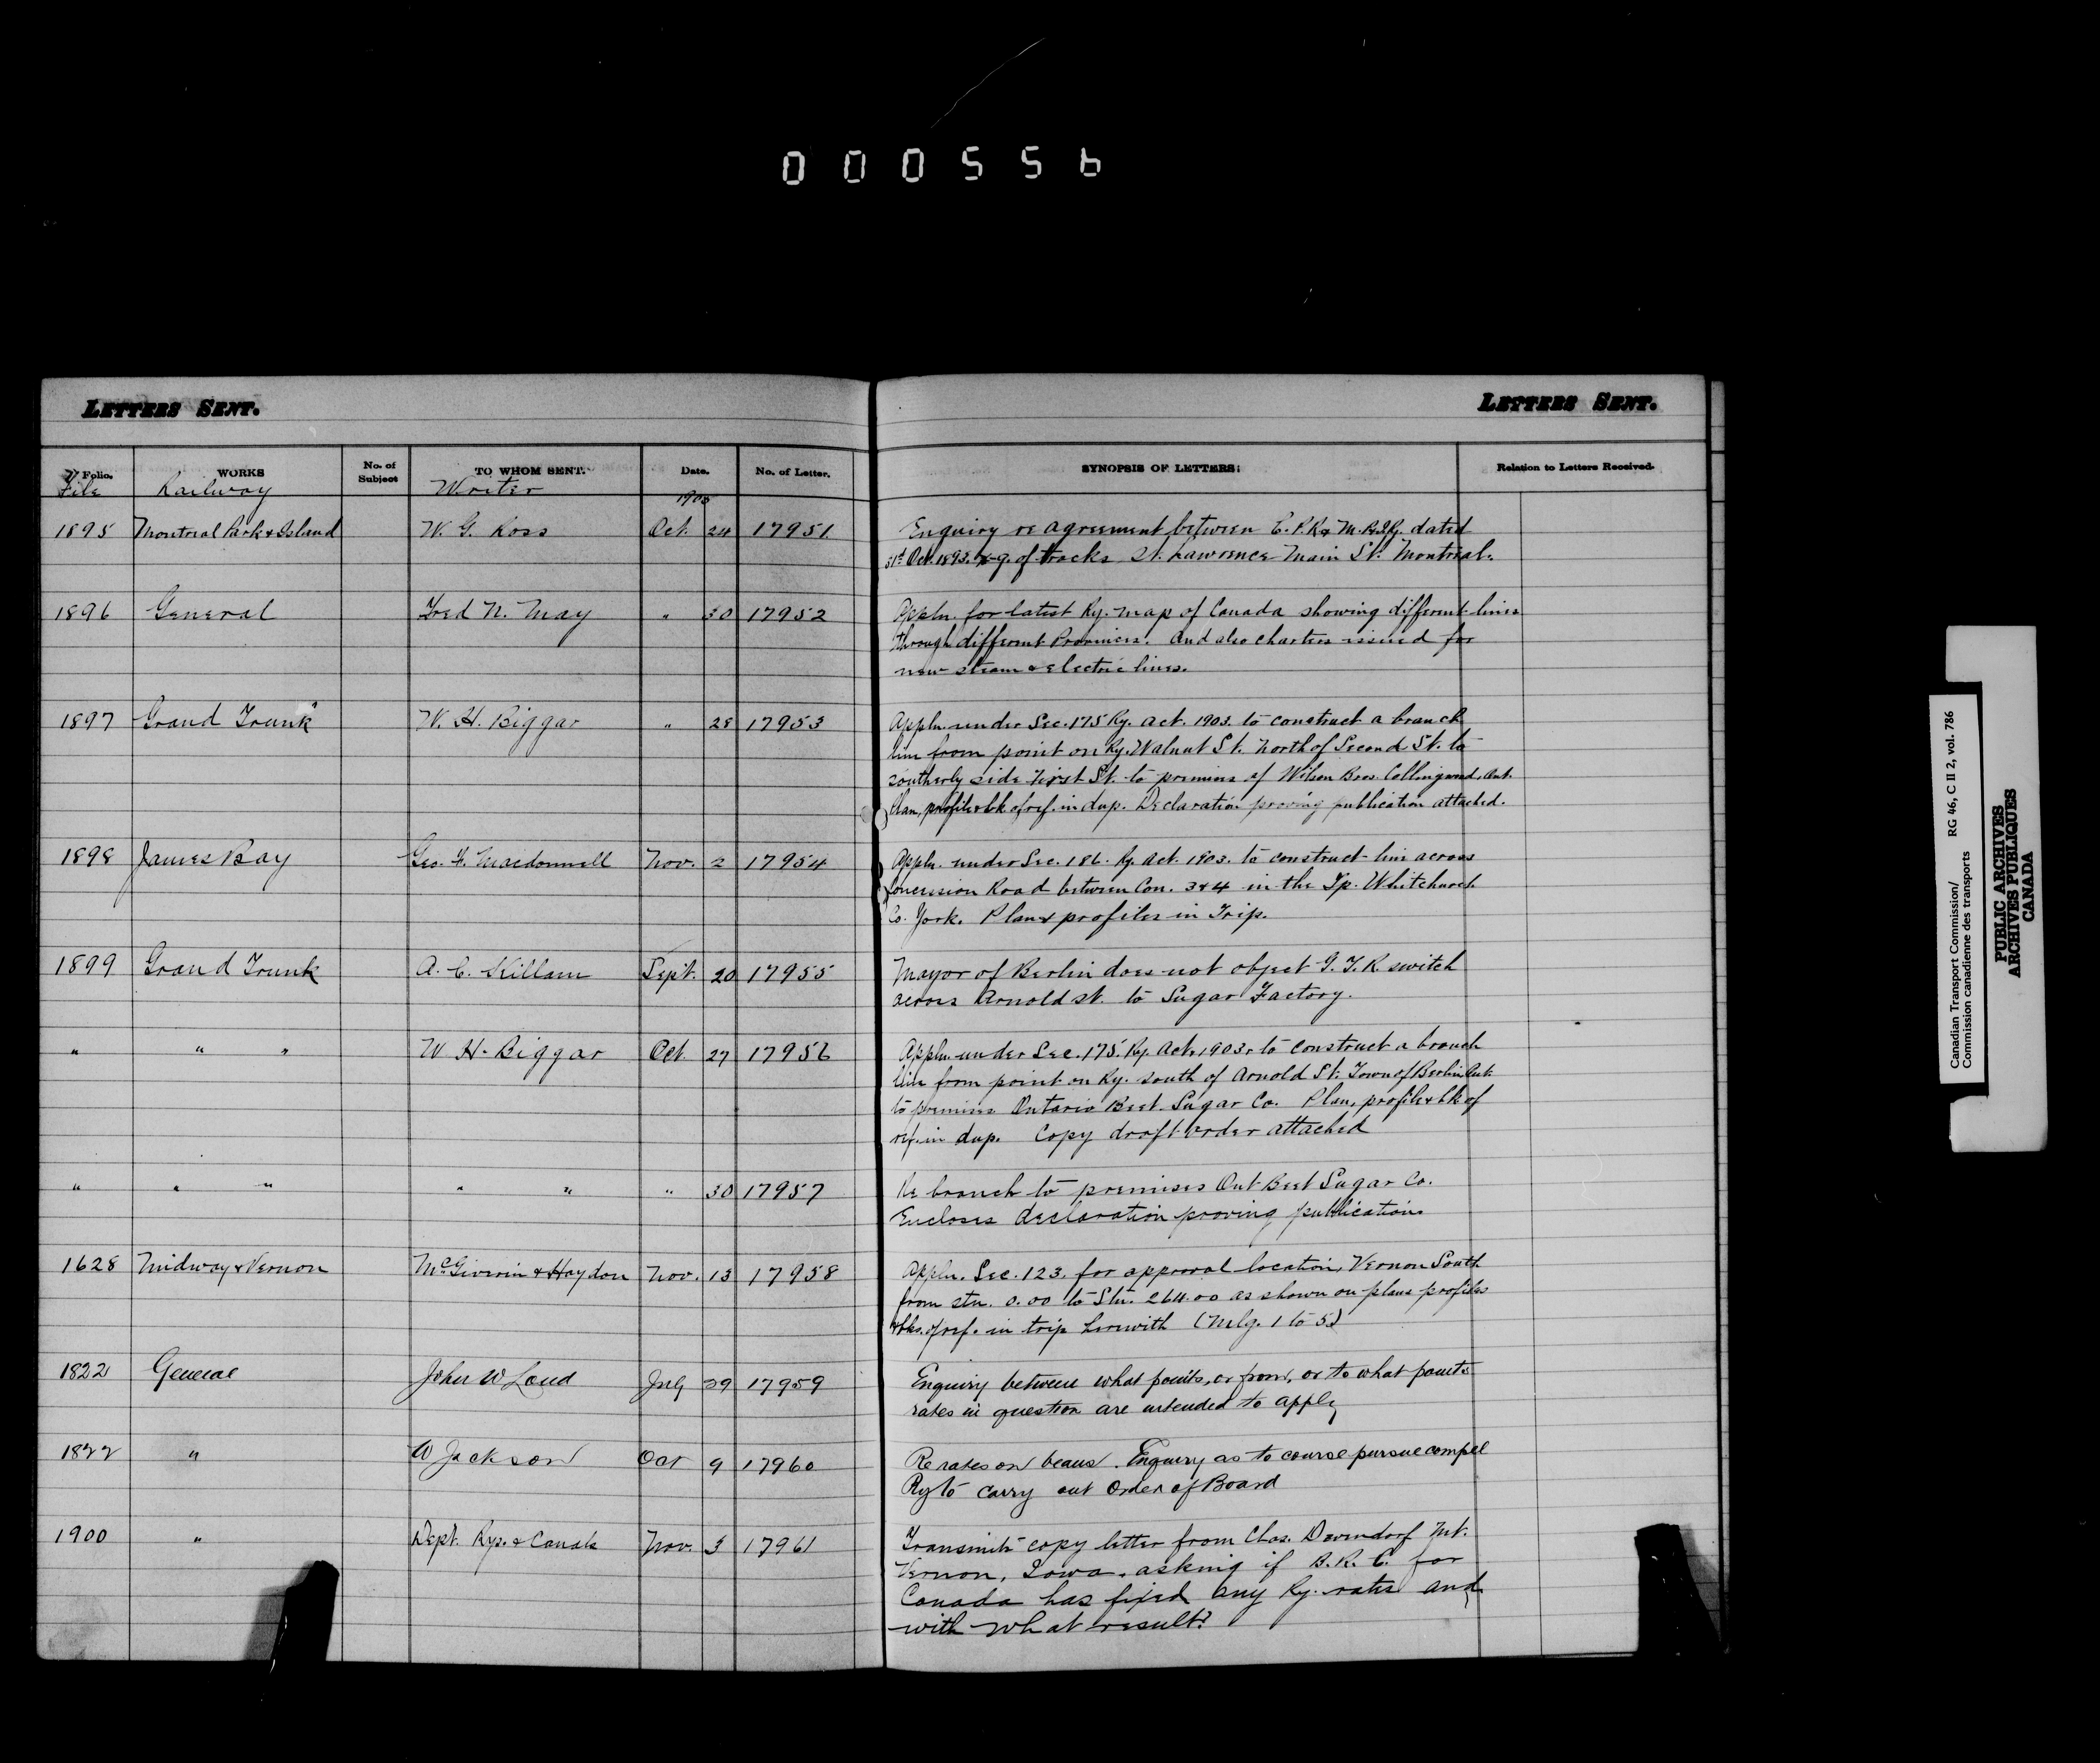 000556
LETTERS SENT.
LETTERS SENT.
Folio. WORKS No. of Subject TO WHOM SENT. Date. No. of Letter. SYNOPSIS OF LETTERS: Relation to Letters Received.
File Railway Writer
1905
1895 Montreal Park & Island W. G. Ross Oct. 24 17951 Enquiry re agreement between C.P.R. & M.P.&I.Ry. dated
31st Oct. 1893. x-g. of tracks St. Lawrence Main St. Montreal.
1896 General Fred N. May " 30 17952 Appln. for latest Ry. map of Canada showing different lines
through different Provinces. And also charters issued for
new steam & electric lines.
1897 Grand Trunk W. H. Biggar " 28 17953 Appln. under Sec. 175 Ry. Act. 1903. to construct a branch
line from point on Ry. Walnut St. North of Second St. to
southerly side First St. to premises of Wilson Bros. Collingwood, Ont.
Plan, profile & bk of ref. in dup. Declaration proving publication attached.
1898 James Bay Geo. F. Macdonnell Nov. 2 17954 Appln. under Sec. 186. Ry. Act. 1903. to construct line across
Concession Road between Con. 3 & 4 in the Tp. Whitchurch
Co. York. Plan & profiles in Trip.
1899 Grand Trunk A. C. Killam Sept. 20 17955 Mayor of Berlin does not object G.T.R. switch
across Arnold st. to Sugar Factory.
" " " W. H. Biggar Oct. 27 17956 Appln. under Sec. 175. Ry. Act. 1903. to construct a branch
line from point on Ry. south of Arnold St. Town of Berlin Ont.
to premises Ontario Beet Sugar Co. Plan, profile & bk of
ref. in dup. Copy draft order attached
" " " " " " 30 17957 Re branch to premises Ont Beet Sugar Co.
Encloses declaration proving publications
1628 Midway & Vernon McGiverin & Haydon Nov. 13 17958 Appln. Sec. 123. for approval location, Vernon South
from stn. 0.00 to Stn. 264.00 as shown on plans profiles
& bks. of ref. in trip herewith (Mlg. 1 to 5)
1822 General John W Loud July 29 17959 Enquiry between what points, or from, or to what points
rates in question are intended to apply
1822 " W Jackson Oct 9 17960 Re rates on beans. Enquiry as to course pursue compel
Ry to carry out Order of Board
1900 " Dept. Rys. & Canals Nov. 3 17961 Transmits copy letter from Chas. Devendorf Mt.
Vernon, Iowa. asking if B.R.C. for
Canada has fixed any Ry. rates and
with what result?
Canadian Transport Commission/ RG 46, C II 2, vol. 786
Commission canadienne des transports
PUBLIC ARCHIVES
ARCHIVES PUBLIQUES
CANADA